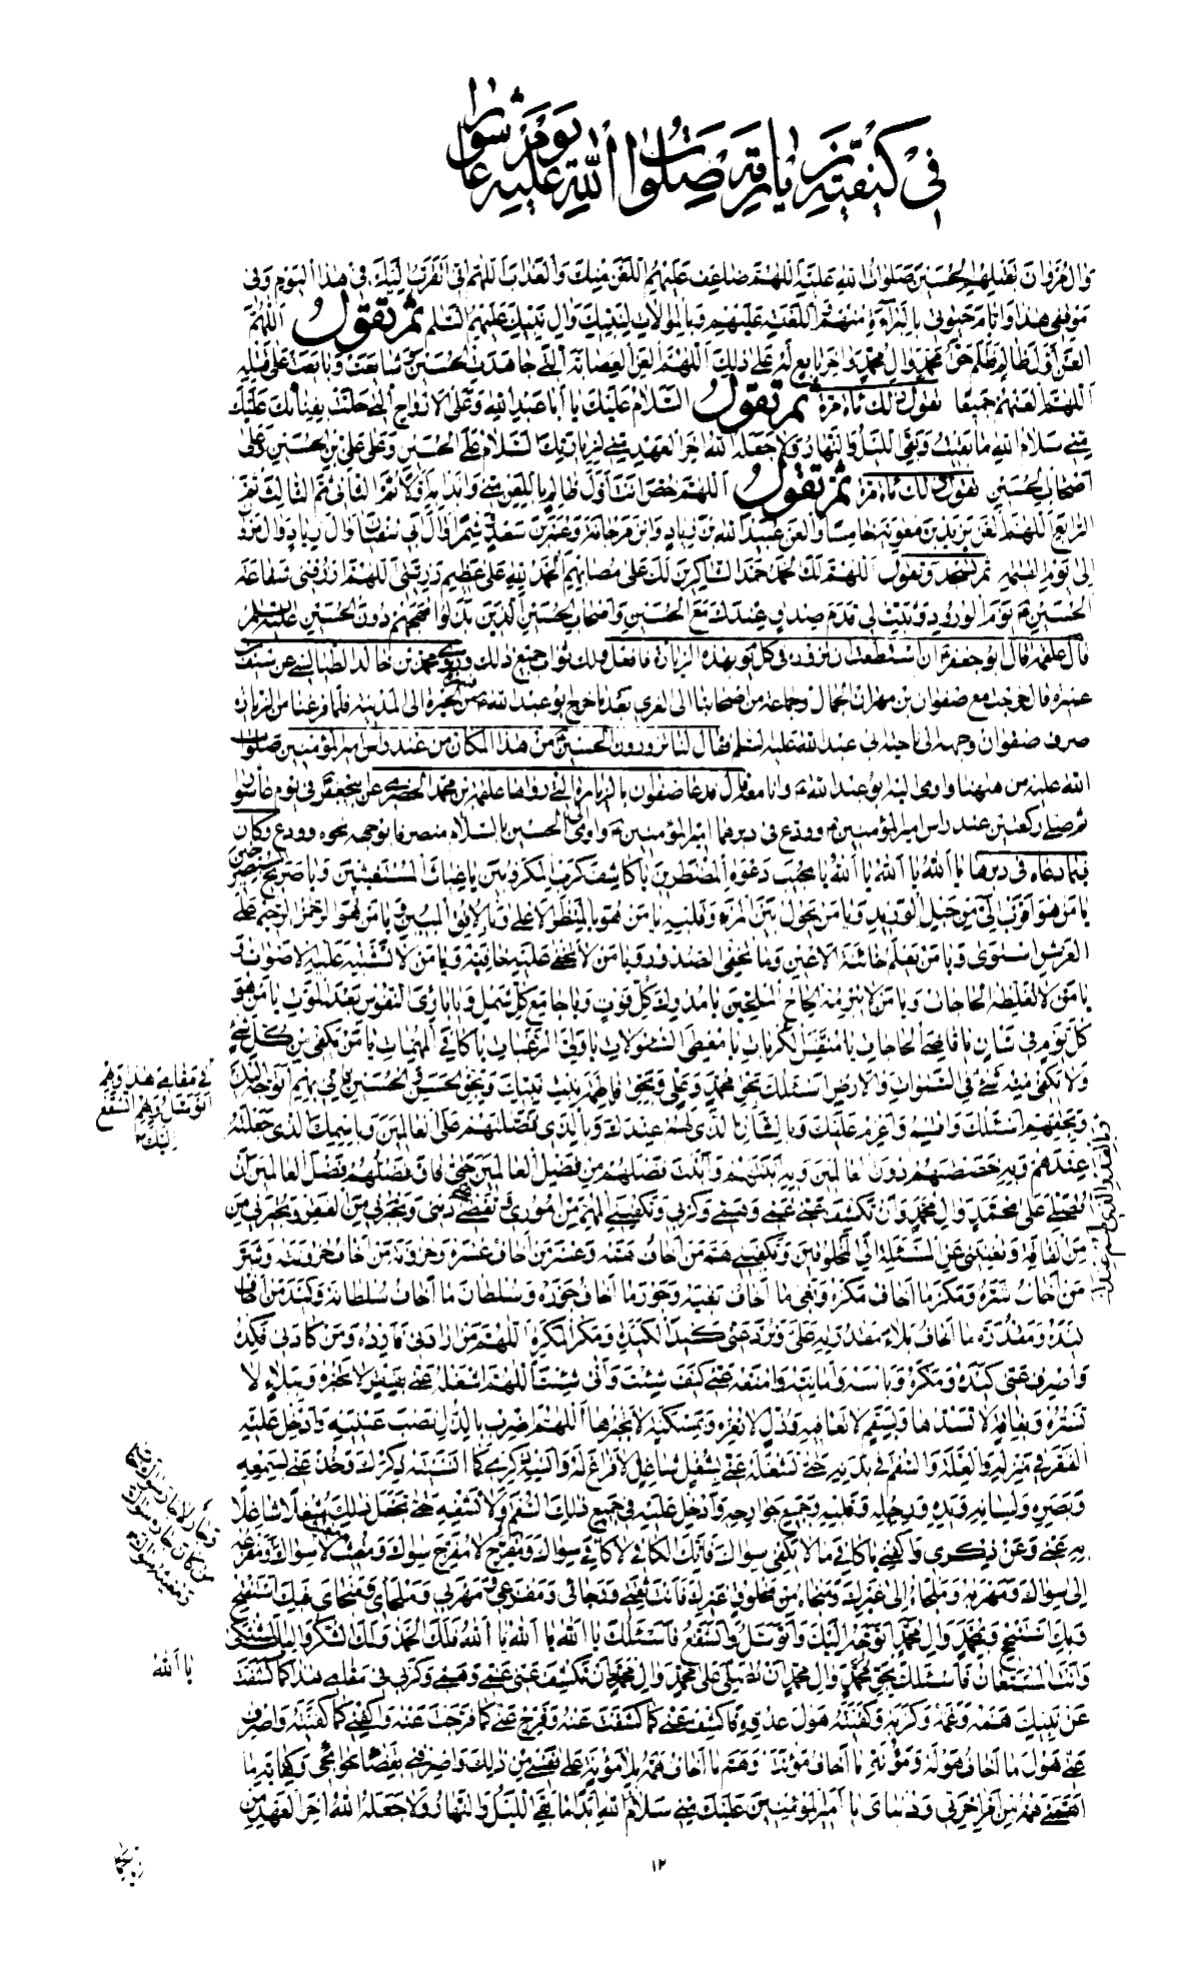 في كيفية زيارته صلوات الله عليه يوم عاشورا
وَآلُ مَرْوَانَ بِقَتْلِهِمُ الْحُسَيْنَ صَلَوَاتُ اللهِ عَلَيْهِ اَللّهُمَّ ضَاعِفْ عَلَيْهِمُ اللَّعْنَ مِنْكَ وَالْعَذَابَ اَللّهُمَّ اِنّي اَتَقَرَّبُ اِلَيْكَ فِي هٰذَا الْيَوْمِ وَفِي
مَوْقِفِي هٰذَا وَاَيَّامِ حَيٰوتِي بِالْبَرَاءَةِ مِنْهُمْ وَاللَّعْنَةِ عَلَيْهِمْ وَبِالْمُوَالَاتِ لِنَبِيِّكَ وَآلِ نَبِيِّكَ عَلَيْهِمُ السَّلَمُ ثم تقول اَللّهُمَّ
الْعَنْ اَوَّلَ ظَالِمٍ ظَلَمَ حَقَّ مُحَمَّدٍ وَآلِ مُحَمَّدٍ وَآخِرَ تَابِعٍ لَهُ عَلٰى ذٰلِكَ اَللّهُمَّ الْعَنِ الْعِصَابَةَ الَّتِي جَاهَدَتِ الْحُسَيْنَ وَشَايَعَتْ وَبَايَعَتْ عَلٰى قَتْلِهِ
اَللّهُمَّ الْعَنْهُمْ جَمِيعًا تقول ذلك مائة مرة ثم تقول اَلسَّلَامُ عَلَيْكَ يَا اَبَا عَبْدِ اللهِ وَعَلَى الْاَرْوَاحِ الَّتِي حَلَّتْ بِفِنَائِكَ عَلَيْكَ
مِنِّي سَلَامُ اللهِ مَا بَقِيتُ وَبَقِيَ اللَّيْلُ وَالنَّهَارُ وَلَا جَعَلَهُ اللهُ آخِرَ الْعَهْدِ مِنِّي لِزِيَارَتِكَ اَلسَّلَامُ عَلَى الْحُسَيْنِ وَعَلٰى عَلِيِّ بْنِ الْحُسَيْنِ وَعَلٰى
اَصْحَابِ الْحُسَيْنِ تقول ذلك مائة مرة ثم تقول اَللّهُمَّ خُصَّ اَنْتَ اَوَّلَ ظَالِمٍ بِاللَّعْنِ مِنِّي وَابْدَأْ بِهِ اَوَّلًا ثُمَّ الثَّانِيَ ثُمَّ الثَّالِثَ ثُمَّ
الرَّابِعَ اَللّهُمَّ الْعَنْ يَزِيدَ بْنَ مُعٰوِيَةَ خَامِسًا وَالْعَنْ عُبَيْدَ اللهِ بْنَ زِيَادٍ وَابْنَ مَرْجَانَةَ وَعُمَرَ بْنَ سَعْدٍ وَشِمْرًا وَآلَ اَبِي سُفْيَانَ وَآلَ زِيَادٍ وَآلَ مَرْوَانَ
اِلٰى يَوْمِ الْقِيٰمَةِ ثم تسجد وتقول اَللّهُمَّ لَكَ الْحَمْدُ حَمْدَ الشَّاكِرِينَ لَكَ عَلٰى مُصَابِهِمْ اَلْحَمْدُ لِلّهِ عَلٰى عَظِيمِ رَزِيَّتِي اَللّهُمَّ ارْزُقْنِي شَفَاعَةَ
الْحُسَيْنِ يَوْمَ الْوُرُودِ وَثَبِّتْ لِي قَدَمَ صِدْقٍ عِنْدَكَ مَعَ الْحُسَيْنِ وَاَصْحَابِ الْحُسَيْنِ الَّذِينَ بَذَلُوا مُهَجَهُمْ دُونَ الْحُسَيْنِ عَلَيْهِ السَّلَمُ
قال علقمة قال ابو جعفر ان استطعت ان تزوره في كل يوم بهذه الزيارة فافعل ولك ثواب جميع ذلك وروى محمد بن خالد الطيالسي عن سيف بن
عميرة قال خرجت مع صفوان بن مهران الجمال وجماعة من اصحابنا الى الغري بعد ما خرج ابو عبد الله من الحيرة الى المدينة فلما فرغنا من الزيارة
صرف صفوان وجهه الى ناحية ابي عبد الله عليه السلم فقال لنا تزورون الحسين من هذا المكان من عند رأس امير المؤمنين صلوات
الله عليه من ههنا واومى اليه ابو عبد الله وانا معه قال فدعا صفوان بالزيارة التي رواها علقمة بن محمد الحضرمي عن ابي جعفر في يوم عاشورا
ثم صلى ركعتين عند رأس امير المؤمنين وودع في دبرهما امير المؤمنين واومى الى الحسين بالسلام منصرفا بوجهه نحوه وودع وكان
فيما دعاه في دبرها يَا اَللهُ يَا اَللهُ يَا اَللهُ يَا مُجِيبَ دَعْوَةِ الْمُضْطَرِّينَ يَا كَاشِفَ كُرَبِ الْمَكْرُوبِينَ يَا غِيَاثَ الْمُسْتَغِيثِينَ وَيَا صَرِيخَ الْمُسْتَصْرِخِينَ
يَا مَنْ هُوَ اَقْرَبُ اِلَيَّ مِنْ حَبْلِ الْوَرِيدِ وَيَا مَنْ يَحُولُ بَيْنَ الْمَرْءِ وَقَلْبِهِ يَا مَنْ هُوَ بِالْمَنْظَرِ الْاَعْلٰى وَبِالْاُفُقِ الْمُبِينِ يَا مَنْ هُوَ الرَّحْمٰنُ الرَّحِيمُ عَلَى
الْعَرْشِ اسْتَوٰى وَيَا مَنْ يَعْلَمُ خَائِنَةَ الْاَعْيُنِ وَمَا تُخْفِي الصُّدُورُ وَيَا مَنْ لَا يَخْفٰى عَلَيْهِ خَافِيَةٌ وَيَا مَنْ لَا تَشْتَبِهُ عَلَيْهِ الْاَصْوَاتُ وَ
يَا مَنْ لَا تُغَلِّطُهُ الْحَاجَاتُ وَيَا مَنْ لَا يُبْرِمُهُ اِلْحَاحُ الْمُلِحِّينَ يَا مُدْرِكَ كُلِّ فَوْتٍ وَيَا جَامِعَ كُلِّ شَمْلٍ وَيَا بَارِئَ النُّفُوسِ بَعْدَ الْمَوْتِ يَا مَنْ هُوَ
كُلَّ يَوْمٍ فِي شَأْنٍ يَا قَاضِيَ الْحَاجَاتِ يَا مُنَفِّسَ الْكُرُبَاتِ يَا مُعْطِيَ السُّؤُلَاتِ يَا وَلِيَّ الرَّغَبَاتِ يَا كَافِيَ الْمُهِمَّاتِ يَا مَنْ يَكْفِي مِنْ كُلِّ شَيْءٍ
وَلَا يَكْفِي مِنْهُ شَيْءٌ فِي السَّمٰوَاتِ وَالْاَرْضِ اَسْئَلُكَ بِحَقِّ مُحَمَّدٍ وَعَلِيٍّ وَبِحَقِّ فَاطِمَةَ بِنْتِ نَبِيِّكَ وَبِحَقِّ الْحَسَنِ وَالْحُسَيْنِ فَاِنِّي بِهِمْ اَتَوَجَّهُ اِلَيْكَ
فِي مَقَامِي هٰذَا وَبِهِمْ
اَتَوَسَّلُ وَبِهِمْ اَتَشَفَّعُ
اِلَيْكَ
وَبِحَقِّهِمْ اَسْئَلُكَ وَاُقْسِمُ وَاَعْزِمُ عَلَيْكَ وَبِالشَّأْنِ الَّذِي لَهُمْ عِنْدَكَ وَبِالَّذِي فَضَّلْتَهُمْ عَلَى الْعَالَمِينَ وَبِاسْمِكَ الَّذِي جَعَلْتَهُ
وَبِالْقَدْرِ الَّذِي لَهُمْ عِنْدَكَ
عِنْدَهُمْ وَبِهِ خَصَصْتَهُمْ دُونَ الْعَالَمِينَ وَبِهِ اَبَنْتَهُمْ وَاَبَنْتَ فَضْلَهُمْ مِنْ فَضْلِ الْعَالَمِينَ حَتّٰى فَاقَ فَضْلُهُمْ فَضْلَ الْعَالَمِينَ اَنْ
تُصَلِّيَ عَلٰى مُحَمَّدٍ وَآلِ مُحَمَّدٍ وَاَنْ تَكْشِفَ عَنِّي غَمِّي وَهَمِّي وَكَرْبِي وَتَكْفِيَنِي الْمُهِمَّ مِنْ اُمُورِي وَتَقْضِيَ عَنِّي دَيْنِي وَتُجِيرَنِي مِنَ الْفَقْرِ وَتُجِيرَنِي مِنَ
مِنَ الْفَاقَةِ وَتُغْنِيَنِي عَنِ الْمَسْئَلَةِ اِلَى الْمَخْلُوقِينَ وَتَكْفِيَنِي هَمَّ مَنْ اَخَافُ هَمَّهُ وَعُسْرَ مَنْ اَخَافُ عُسْرَهُ وَحُزُونَةَ مَنْ اَخَافُ حُزُونَتَهُ وَشَرَّ
مَنْ اَخَافُ شَرَّهُ وَمَكْرَ مَا اَخَافُ مَكْرَهُ وَبَغْيَ مَا اَخَافُ بَغْيَهُ وَجَوْرَ مَا اَخَافُ جَوْرَهُ وَسُلْطَانَ مَا اَخَافُ سُلْطَانَهُ وَكَيْدَ مَنْ اَخَافُ
كَيْدَهُ وَمَقْدُرَةَ مَا اَخَافُ بَلَاءَ مَقْدُرَتِهِ عَلَيَّ وَتَرُدَّ عَنِّي كَيْدَ الْكَيَدَةِ وَمَكْرَ الْمَكَرَةِ اَللّهُمَّ مَنْ اَرَادَنِي فَاَرِدْهُ وَمَنْ كَادَنِي فَكِدْهُ
وَاصْرِفْ عَنِّي كَيْدَهُ وَمَكْرَهُ وَبَأْسَهُ وَاَمَانِيَّهُ وَامْنَعْهُ عَنِّي كَيْفَ شِئْتَ وَاَنّٰى شِئْتَ اَللّهُمَّ اشْغَلْهُ عَنِّي بِفَقْرٍ لَا تَجْبُرُهُ وَبِبَلَاءٍ لَا
تَسْتُرُهُ وَبِفَاقَةٍ لَا تَسُدُّهَا وَبِسُقْمٍ لَا تُعَافِيهِ وَذُلٍّ لَا تُعِزُّهُ وَبِمَسْكَنَةٍ لَا تَجْبُرُهَا اَللّهُمَّ اضْرِبْ بِالذُّلِّ نَصْبَ عَيْنَيْهِ وَاَدْخِلْ عَلَيْهِ
الْفَقْرَ فِي مَنْزِلِهِ وَالْعِلَّةَ وَالسُّقْمَ فِي بَدَنِهِ حَتّٰى تَشْغَلَهُ عَنِّي بِشُغْلٍ شَاغِلٍ لَا فَرَاغَ لَهُ وَاَنْسِهِ ذِكْرِي كَمَا اَنْسَيْتَهُ ذِكْرَكَ وَخُذْ عَنِّي بِسَمْعِهِ
وَبَصَرِهِ وَلِسَانِهِ وَيَدِهِ وَرِجْلِهِ وَقَلْبِهِ وَجَمِيعِ جَوَارِحِهِ وَاَدْخِلْ عَلَيْهِ فِي جَمِيعِ ذٰلِكَ السُّقْمَ وَلَا تَشْفِهِ حَتّٰى تَجْعَلَ ذٰلِكَ شُغْلًا شَاغِلًا
بِهِ عَنِّي وَعَنْ ذِكْرِي وَاكْفِنِي يَا كَافِيَ مَا لَا يَكْفِي سِوَاكَ فَاِنَّكَ الْكَافِي لَا كَافِيَ سِوَاكَ وَمُفَرِّجٌ لَا مُفَرِّجَ سِوَاكَ وَمُغِيثٌ لَا سِوَاكَ وَمَفْزَعُهُ
اِلٰى سِوَاكَ وَمَهْرَبُهُ وَمَلْجَاهُ اِلٰى غَيْرِكَ وَمَنْجَاهُ مِنْ مَخْلُوقٍ غَيْرِكَ فَاَنْتَ ثِقَتِي وَرَجَائِي وَمَفْزَعِي وَمَهْرَبِي وَمَلْجَايَ وَمَنْجَايَ فَبِكَ اَسْتَفْتِحُ
وَبِكَ اَسْتَنْجِحُ وَبِمُحَمَّدٍ وَآلِ مُحَمَّدٍ اَتَوَجَّهُ اِلَيْكَ وَاَتَوَسَّلُ وَاَتَشَفَّعُ فَاَسْئَلُكَ يَا اَللهُ يَا اَللهُ يَا اَللهُ فَلَكَ الْحَمْدُ وَلَكَ الشُّكْرُ وَاِلَيْكَ الْمُشْتَكٰى
يَا اَللهُ
وَاَنْتَ الْمُسْتَعَانُ فَاَسْئَلُكَ بِحَقِّ مُحَمَّدٍ وَآلِ مُحَمَّدٍ اَنْ تُصَلِّيَ عَلٰى مُحَمَّدٍ وَآلِ مُحَمَّدٍ وَاَنْ تَكْشِفَ عَنِّي غَمِّي وَهَمِّي وَكَرْبِي فِي مَقَامِي هٰذَا كَمَا كَشَفْتَ
عَنْ نَبِيِّكَ هَمَّهُ وَغَمَّهُ وَكَرْبَهُ وَكَفَيْتَهُ هَوْلَ عَدُوِّهِ فَاكْشِفْ عَنِّي كَمَا كَشَفْتَ عَنْهُ وَفَرِّجْ عَنِّي كَمَا فَرَّجْتَ عَنْهُ وَاكْفِنِي كَمَا كَفَيْتَهُ وَاصْرِفْ
عَنِّي هَوْلَ مَا اَخَافُ هَوْلَهُ وَمَؤُنَةَ مَا اَخَافُ مَؤُنَتَهُ وَهَمَّ مَا اَخَافُ هَمَّهُ بِلَا مَؤُنَةٍ عَلٰى نَفْسِي مِنْ ذٰلِكَ وَاصْرِفْنِي بِقَضَاءِ حَوَائِجِي وَكِفَايَةِ مَا
اَهَمَّنِي هَمُّهُ مِنْ اَمْرِ آخِرَتِي وَدُنْيَايَ يَا اَمِيرَ الْمُؤْمِنِينَ عَلَيْكَ مِنِّي سَلَامُ اللهِ اَبَدًا مَا بَقِيَ اللَّيْلُ وَالنَّهَارُ وَلَا جَعَلَهُ اللهُ آخِرَ الْعَهْدِ مِنْ
زيارتكما
١٢